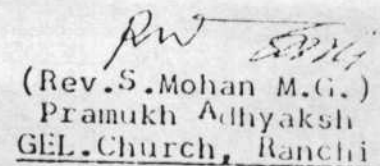 (Rev.S.Mohan M.G.)
Pramukh Adhyaksh
GEL.Church, Ranchi